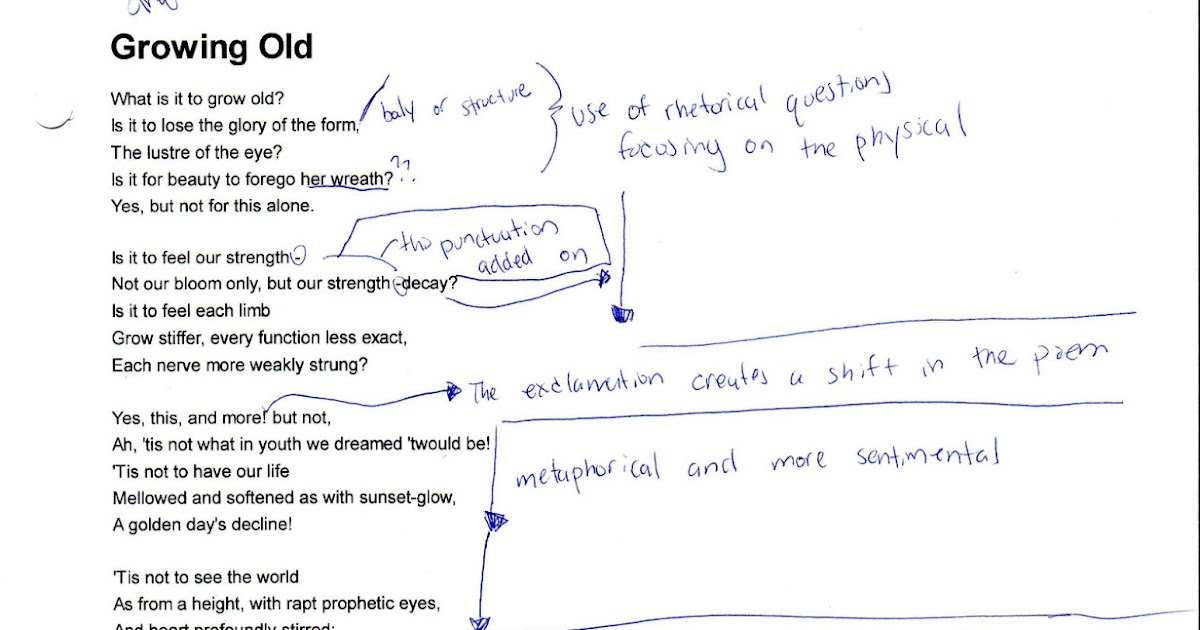 Growing Old
What is it to grow old?
Is it to lose the glory of the form,
The lustre of the eye?
Is it for beauty to forego her wreath?
??
Yes, but not for this alone.
body or structure
use of rhetorical questions
focusing on the physical
Is it to feel our strength-
Not our bloom only, but our strength -decay?
Is it to feel each limb
Grow stiffer, every function less exact,
Each nerve more weakly strung?
this punctuation
added on
Yes, this, and more! but not,
Ah, 'tis not what in youth we dreamed 'twould be!
'Tis not to have our life
Mellowed and softened as with sunset-glow,
A golden day's decline!
The exclamation creates a shift in the poem
metaphorical and more sentimental
'Tis not to see the world
As from a height, with rapt prophetic eyes,
And heart profoundly stirred;